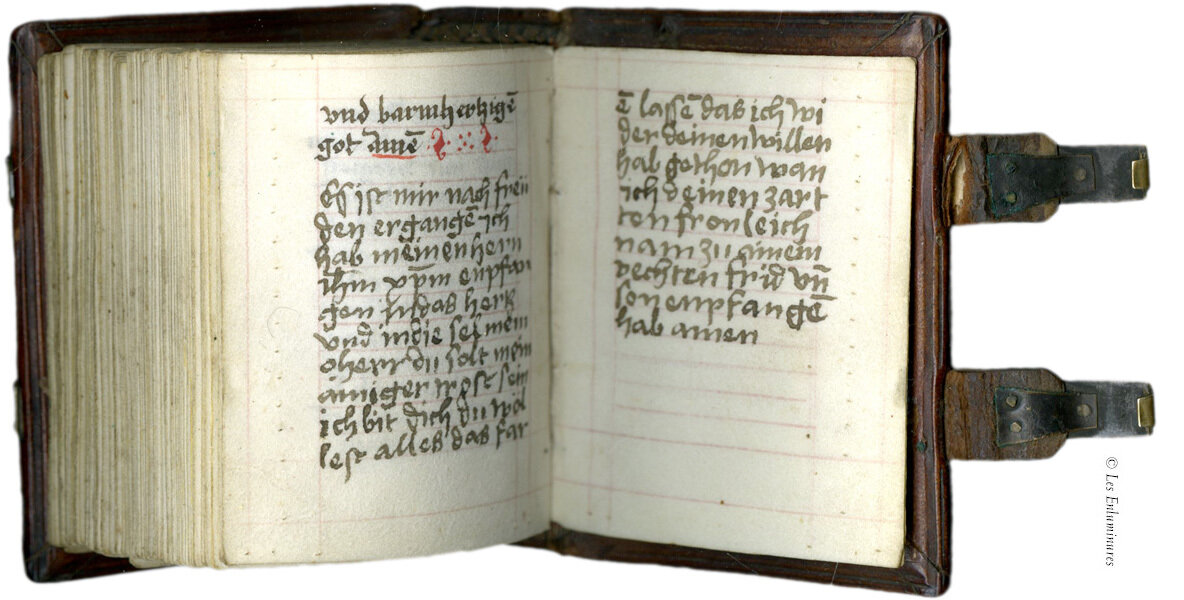 vnd barmhertzigē
got amē
Es ist mir nach freü
den ergangē ich
hab meinen hern
ihm xp̄m enpfan
gen in das hertz
vnd in die sel mein
o herr du solt mein
ainiger trost sein
ich bit dich du wöl
lest alles das far
ē lassē das ich wi
der deinen willen
hab gethon wan
ich deinen zart
ten fronleich
nam zu ainem
rechten frid vn̄
son enpfangē
hab amen
© Les Enluminures